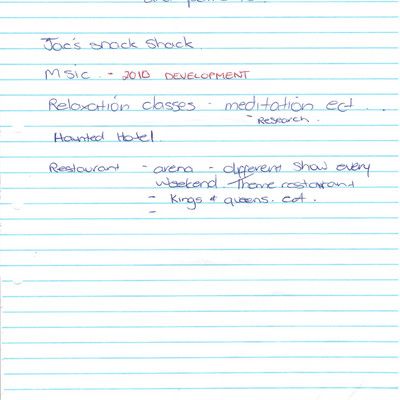 Jac's snack shack
Msic. - 2010 DEVELOPMENT
Relaxation classes - meditation ect . . .
- Research .
Haunted Hotel.
Restaurant - arena - different show every
weekend. Theme restaurant
- Kings & queens. ect .
-